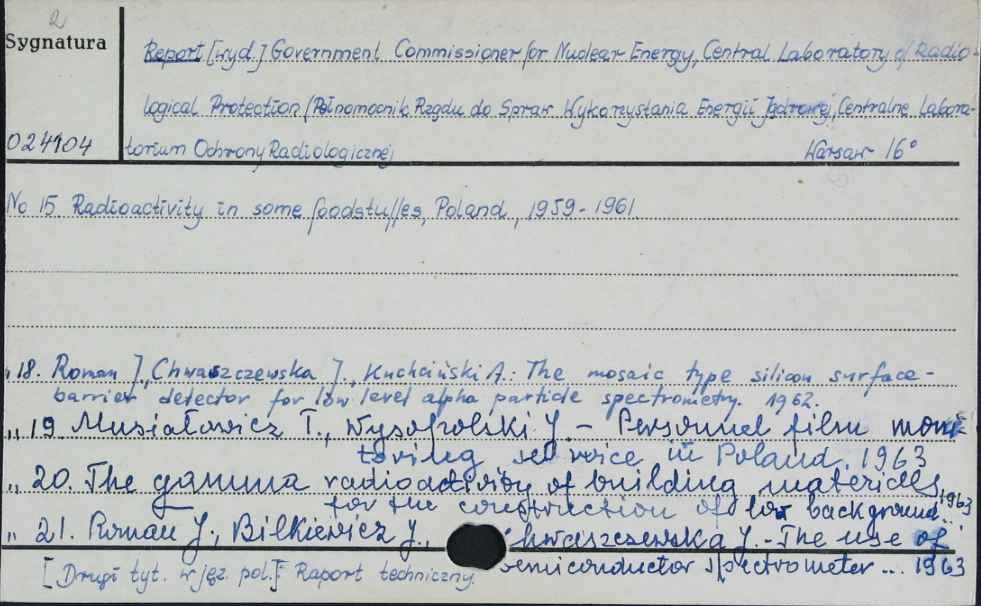 2
Sygnatura
Report [wyd.] Government Commissioner for Nuclear Energy, Central Laboratory of Radio-
logical Protection (Pełnomocnik Rządu do Spraw Wykorzystania Energii Jądrowej, Centralne Labora-
024104 torium Ochrony Radiologicznej Warsaw 16°
No 15. Radioactivity in some foodstuffes, Poland, 1959-1961
„ 18. Roman J., Chwaszczewska J., Kuchciński A.: The mosaic type silicon surface-
barrier detector for low level alpha particle spectrometry. 1962.
„ 19 Musiałowicz T., Wysopolski J. - Personnel film moni-
toring service in Poland. 1963
„ 20. The gamma radioactivity of building materials
for the construction of low background.. 1963
„ 21. Roman J., Bilkiewicz J., Chwaszczewska J. - The use of
semiconductor spectrometer ... 1963
[Drugi tyt. w jęz. pol.]: Raport techniczny.